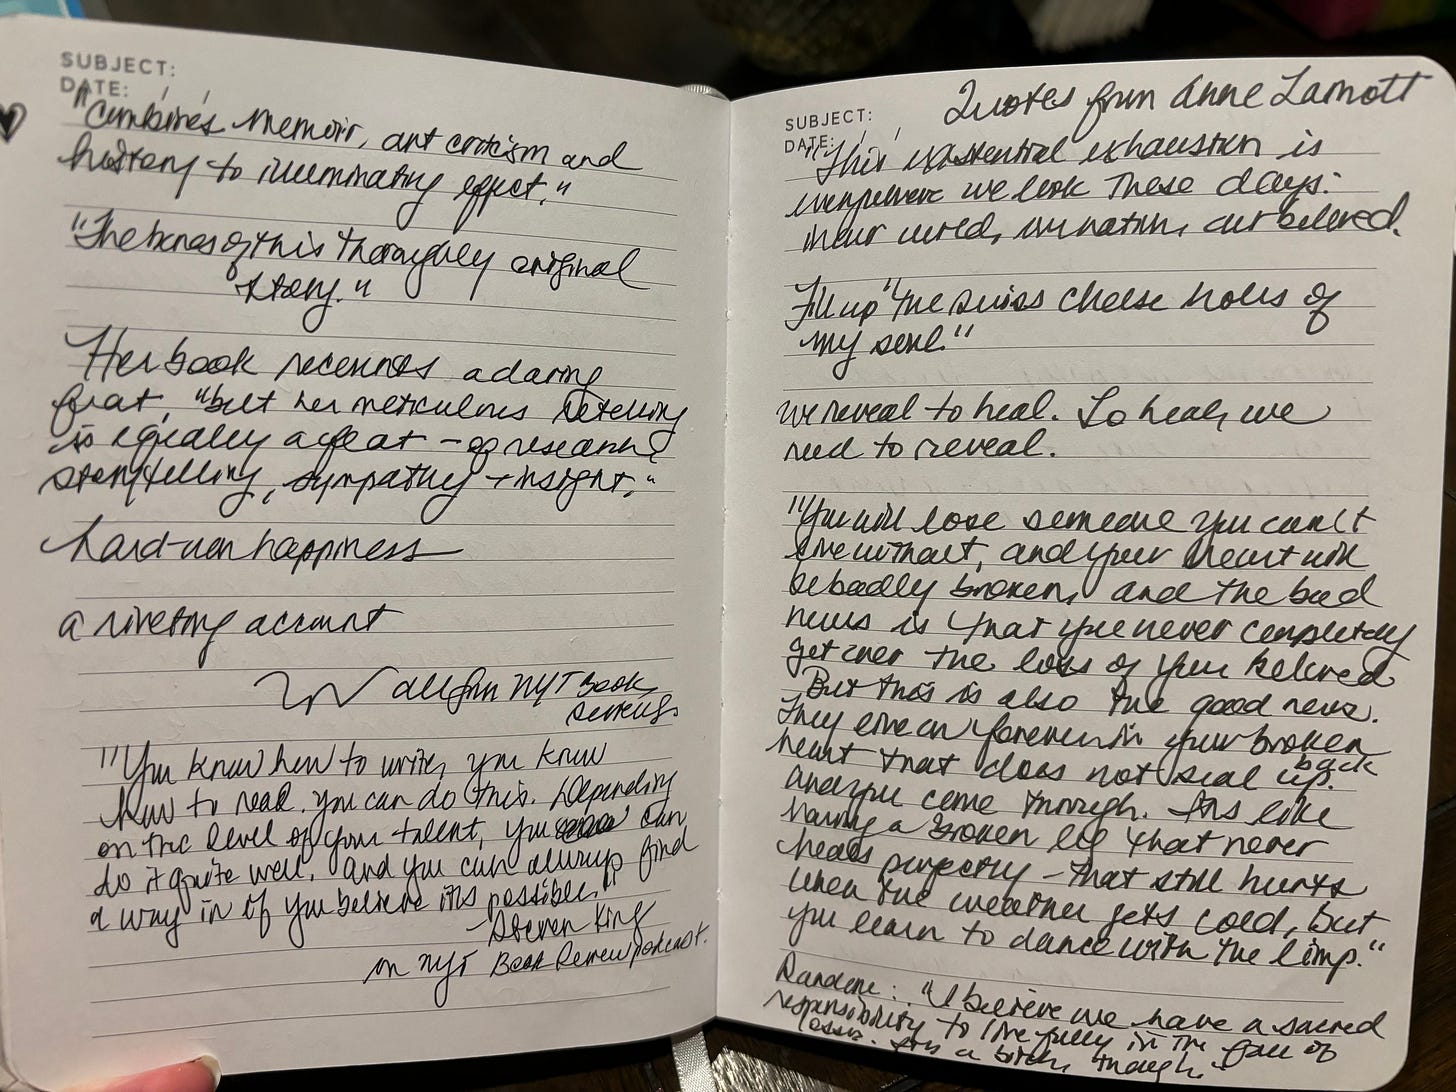 SUBJECT:
DATE: / /
"Combines memoir, art criticism and
history to illuminating effect."
"The bones of this thoroughly original
story."
Her book recounts a daring
feat, "but her meticulous retelling
is equally a feat – of research,
storytelling, sympathy + insight."
hard-won happiness
a riveting account
all from NYT Book
Reviews.
"You know how to write, you know
how to read. you can do this. Depending
on the level of your talent, you can
do it quite well. and you can always find
a way in if you believe it's possible."
- Steven King
on NYT Book Review podcast.
Quotes from Anne Lamott
SUBJECT:
DATE: / /
"This existential exhaustion is
everywhere we look these days:
in our world, our nation, our beloved.
Fill up "the swiss cheese holes of
my soul."
we reveal to heal. To heal, we
need to reveal.
"You will lose someone you can't
live without, and your heart will
be badly broken, and the bad
news is that you never completely
get over the loss of your beloved
But this is also the good news.
They live on forever in your broken
heart that does not seal back up.
and you come through. It's like
having a broken leg that never
heals perfectly – that still hurts
when the weather gets cold, but
you learn to dance with the limp."
"I believe we have a sacred
responsibility to live fully in the face of
loss. It's a bitch, though."